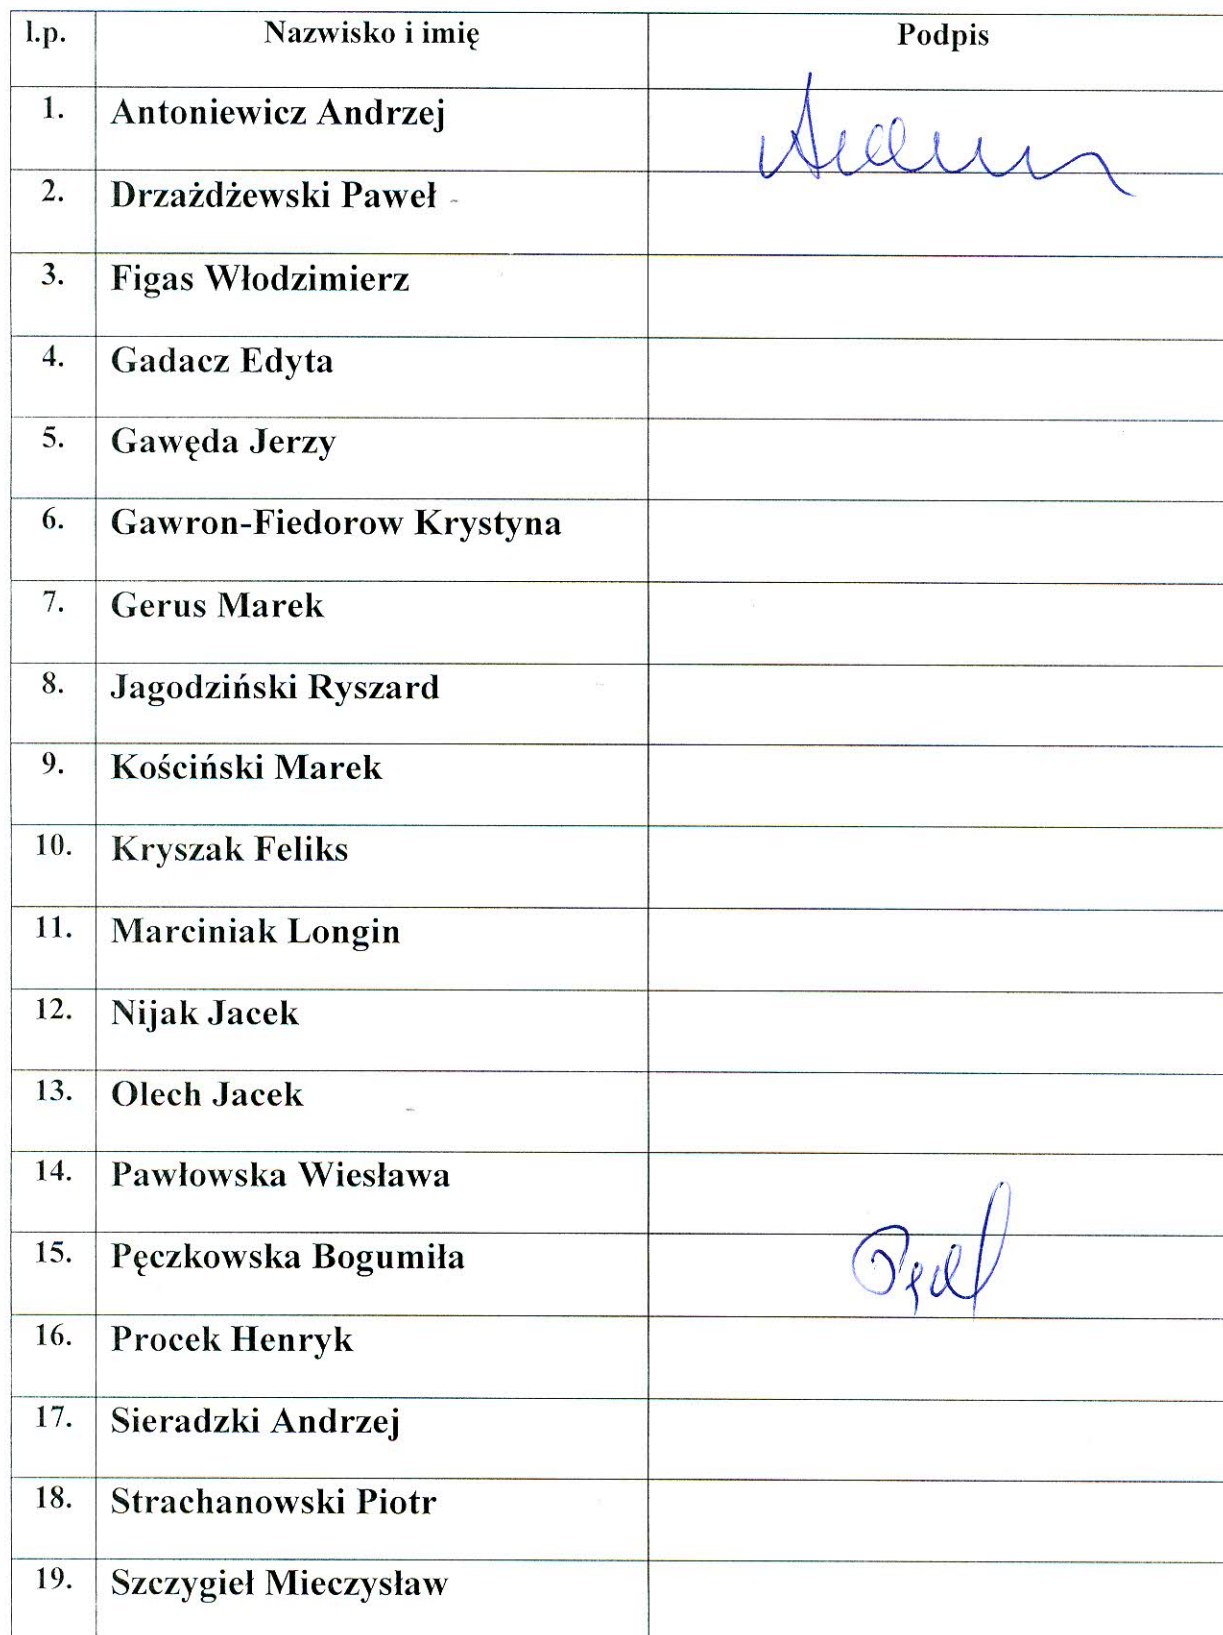 l.p. Nazwisko i imię Podpis
1. Antoniewicz Andrzej
2. Drzażdżewski Paweł
3. Figas Włodzimierz
4. Gadacz Edyta
5. Gawęda Jerzy
6. Gawron-Fiedorow Krystyna
7. Gerus Marek
8. Jagodziński Ryszard
9. Kościński Marek
10. Kryszak Feliks
11. Marciniak Longin
12. Nijak Jacek
13. Olech Jacek
14. Pawłowska Wiesława
15. Pęczkowska Bogumiła
16. Procek Henryk
17. Sieradzki Andrzej
18. Strachanowski Piotr
19. Szczygieł Mieczysław